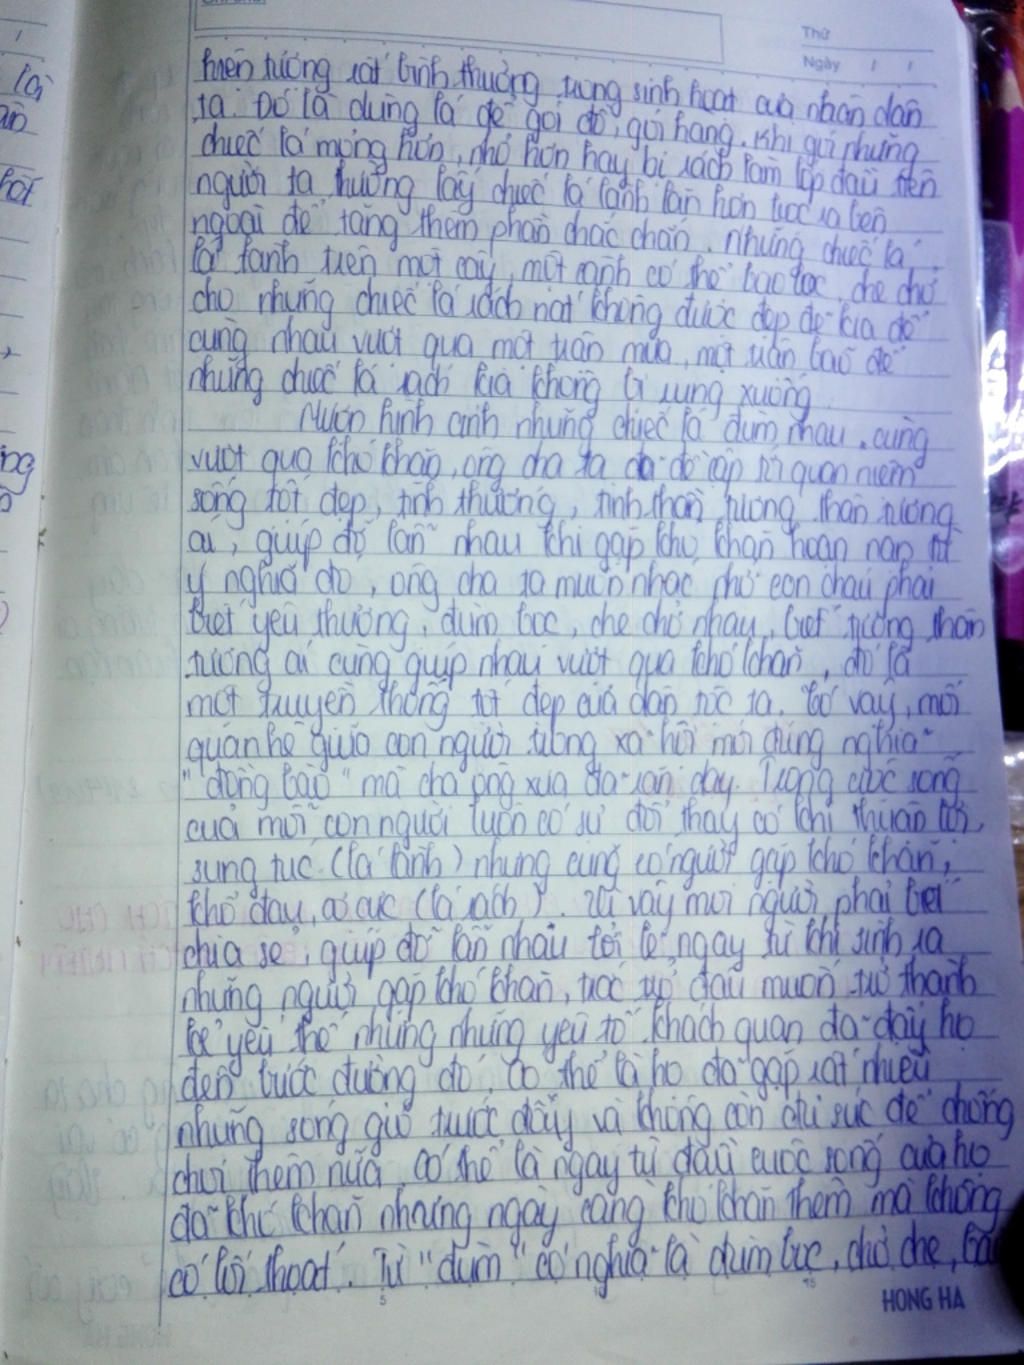 Thứ
Ngày / /
hiện tượng rất bình thường trong sinh hoạt của nhân dân
ta. Đó là dùng lá để gói đồ, gói hàng. Khi gói những
chiếc lá mỏng hơn, nhỏ hơn hay bị rách làm lớp đầu tiên
người ta thường lấy chiếc lá lành lặn hơn bọc ra bên
ngoài để tăng thêm phần chắc chắn. Những chiếc lá
lá lành trên một cây, một cành có thể bao bọc, che chở
cho những chiếc lá rách nát không được đẹp đẽ kia để
cùng nhau vượt qua một trận mưa, một trận bão để
những chiếc lá rách kia không bị rụng xuống.
Mượn hình ảnh những chiếc lá đùm nhau, cùng
vượt qua khó khăn, ông cha ta đã đề cập tới quan niệm
sống tốt đẹp, tình thương, tinh thần tương thân tương
ái, giúp đỡ lẫn nhau khi gặp khó khăn hoạn nạn từ
ý nghĩa đó, ông cha ta muốn nhắc nhở con cháu phải
biết yêu thương, đùm bọc, che chở nhau, biết tương thân
tương ái cùng giúp nhau vượt qua khó khăn, đó là
một truyền thống tốt đẹp của dân tộc ta. Có vậy, mối
quan hệ giữa con người trong xã hội mới đúng nghĩa
"đồng bào" mà cha ông xưa đã răn dạy. Trong cuộc sống
của mỗi con người luôn có sự đổi thay có khi thuận lợi,
sung túc (lá lành) nhưng cũng có người gặp khó khăn,
khổ đau, cơ cực (lá rách). Vì vậy mọi người phải biết
chia sẻ, giúp đỡ lẫn nhau bởi lẽ, ngay từ khi sinh ra
những người gặp khó khăn, bọc đâu muốn trở thành
kẻ yếu thế nhưng những yếu tố khách quan đã đẩy họ
đến bước đường đó. Có thể là họ đã gặp rất nhiều
những sóng gió trước đây và không còn đủ sức để chống
chọi thêm nữa. Có thể là ngay từ đầu cuộc sống của họ
đã khó khăn nhưng ngày càng khó khăn thêm mà không
có lối thoát. Từ "đùm" có nghĩa là đùm bọc, chở che,
HONG HA